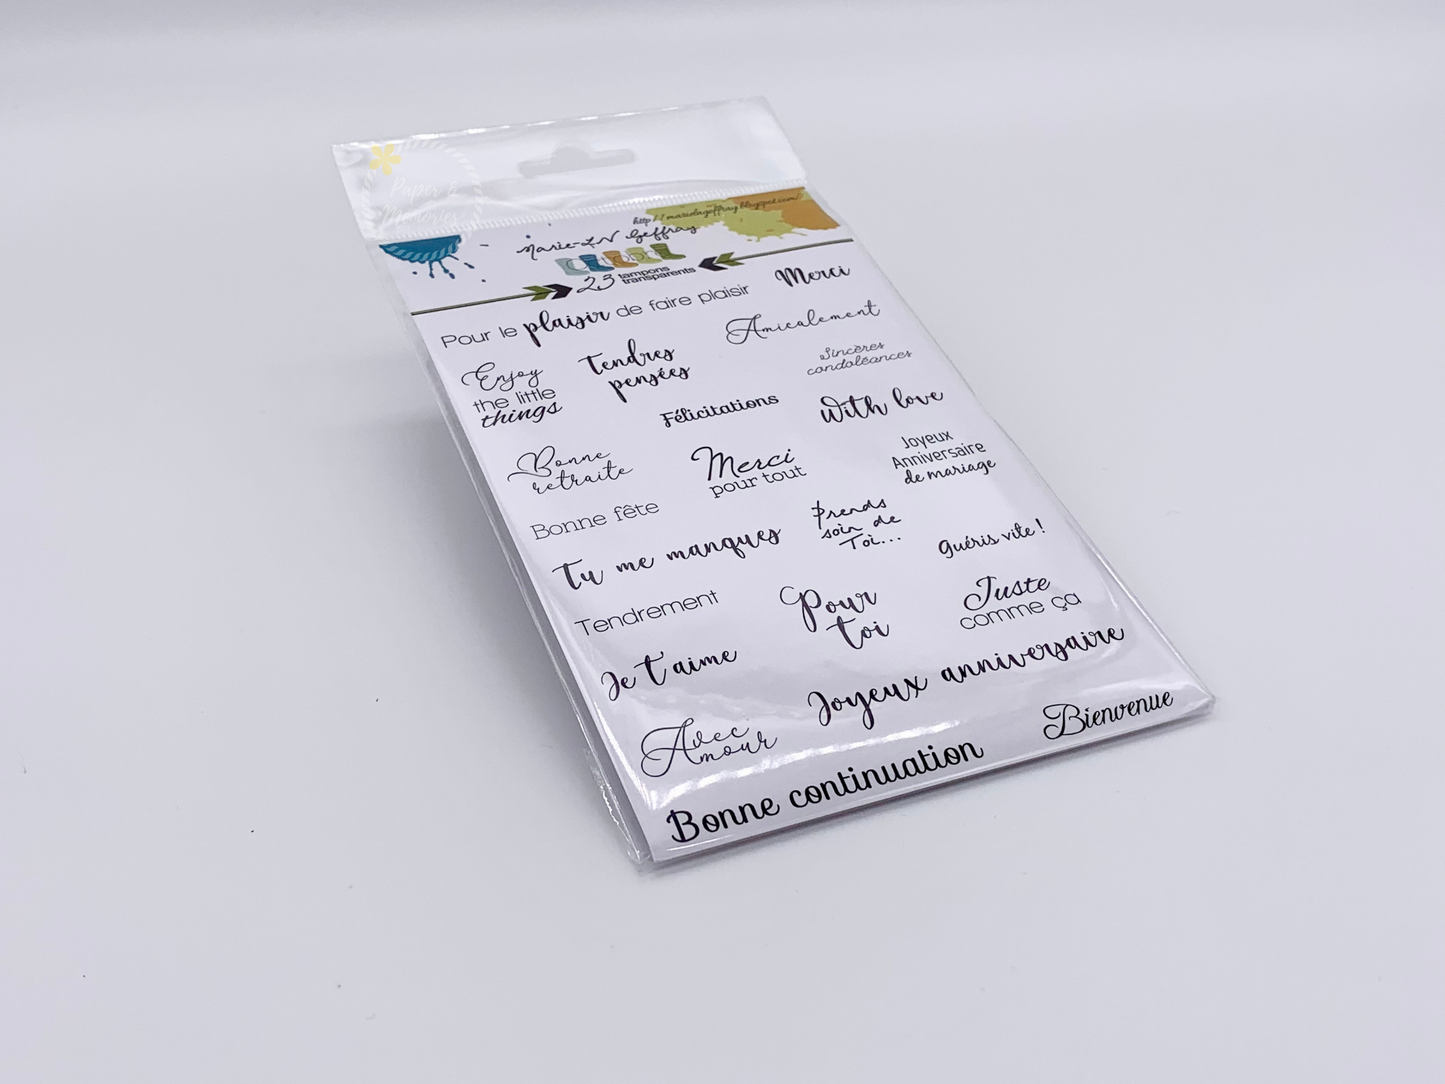 Paper &
Memories
http://marielngeffray.blogspot.com/
Marie-LN Geffray
23 tampons
transparents
Merci
Pour le plaisir de faire plaisir
Amicalement
Enjoy
the little
things
Tendres
pensées
Sincères
condoléances
Félicitations
With love
Bonne
retraite
Merci
pour tout
Joyeux
Anniversaire
de mariage
Bonne fête
Prends
soin de
Toi...
Tu me manques
Guéris vite !
Tendrement
Pour
toi
Juste
comme ça
Je t'aime
Joyeux anniversaire
Avec
Amour
Bienvenue
Bonne continuation